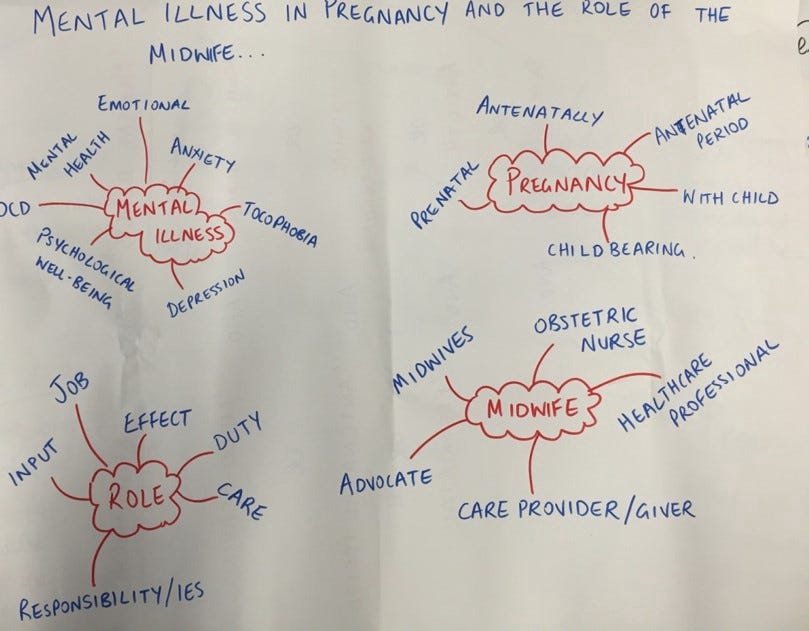 MENTAL ILLNESS IN PREGNANCY AND THE ROLE OF THE
MIDWIFE...
EMOTIONAL
MENTAL
HEALTH
ANXIETY
OCD
MENTAL
ILLNESS
TOCOPHOBIA
PSYCHOLOGICAL
WELL-BEING
DEPRESSION
ANTENATALLY
ANTENATAL
PERIOD
PRENATAL
PREGNANCY
WITH CHILD
CHILD BEARING.
JOB
EFFECT
DUTY
INPUT
ROLE
CARE
RESPONSIBILITY/IES
OBSTETRIC
NURSE
MIDWIVES
MIDWIFE
HEALTHCARE
PROFESSIONAL
ADVOCATE
CARE PROVIDER/GIVER